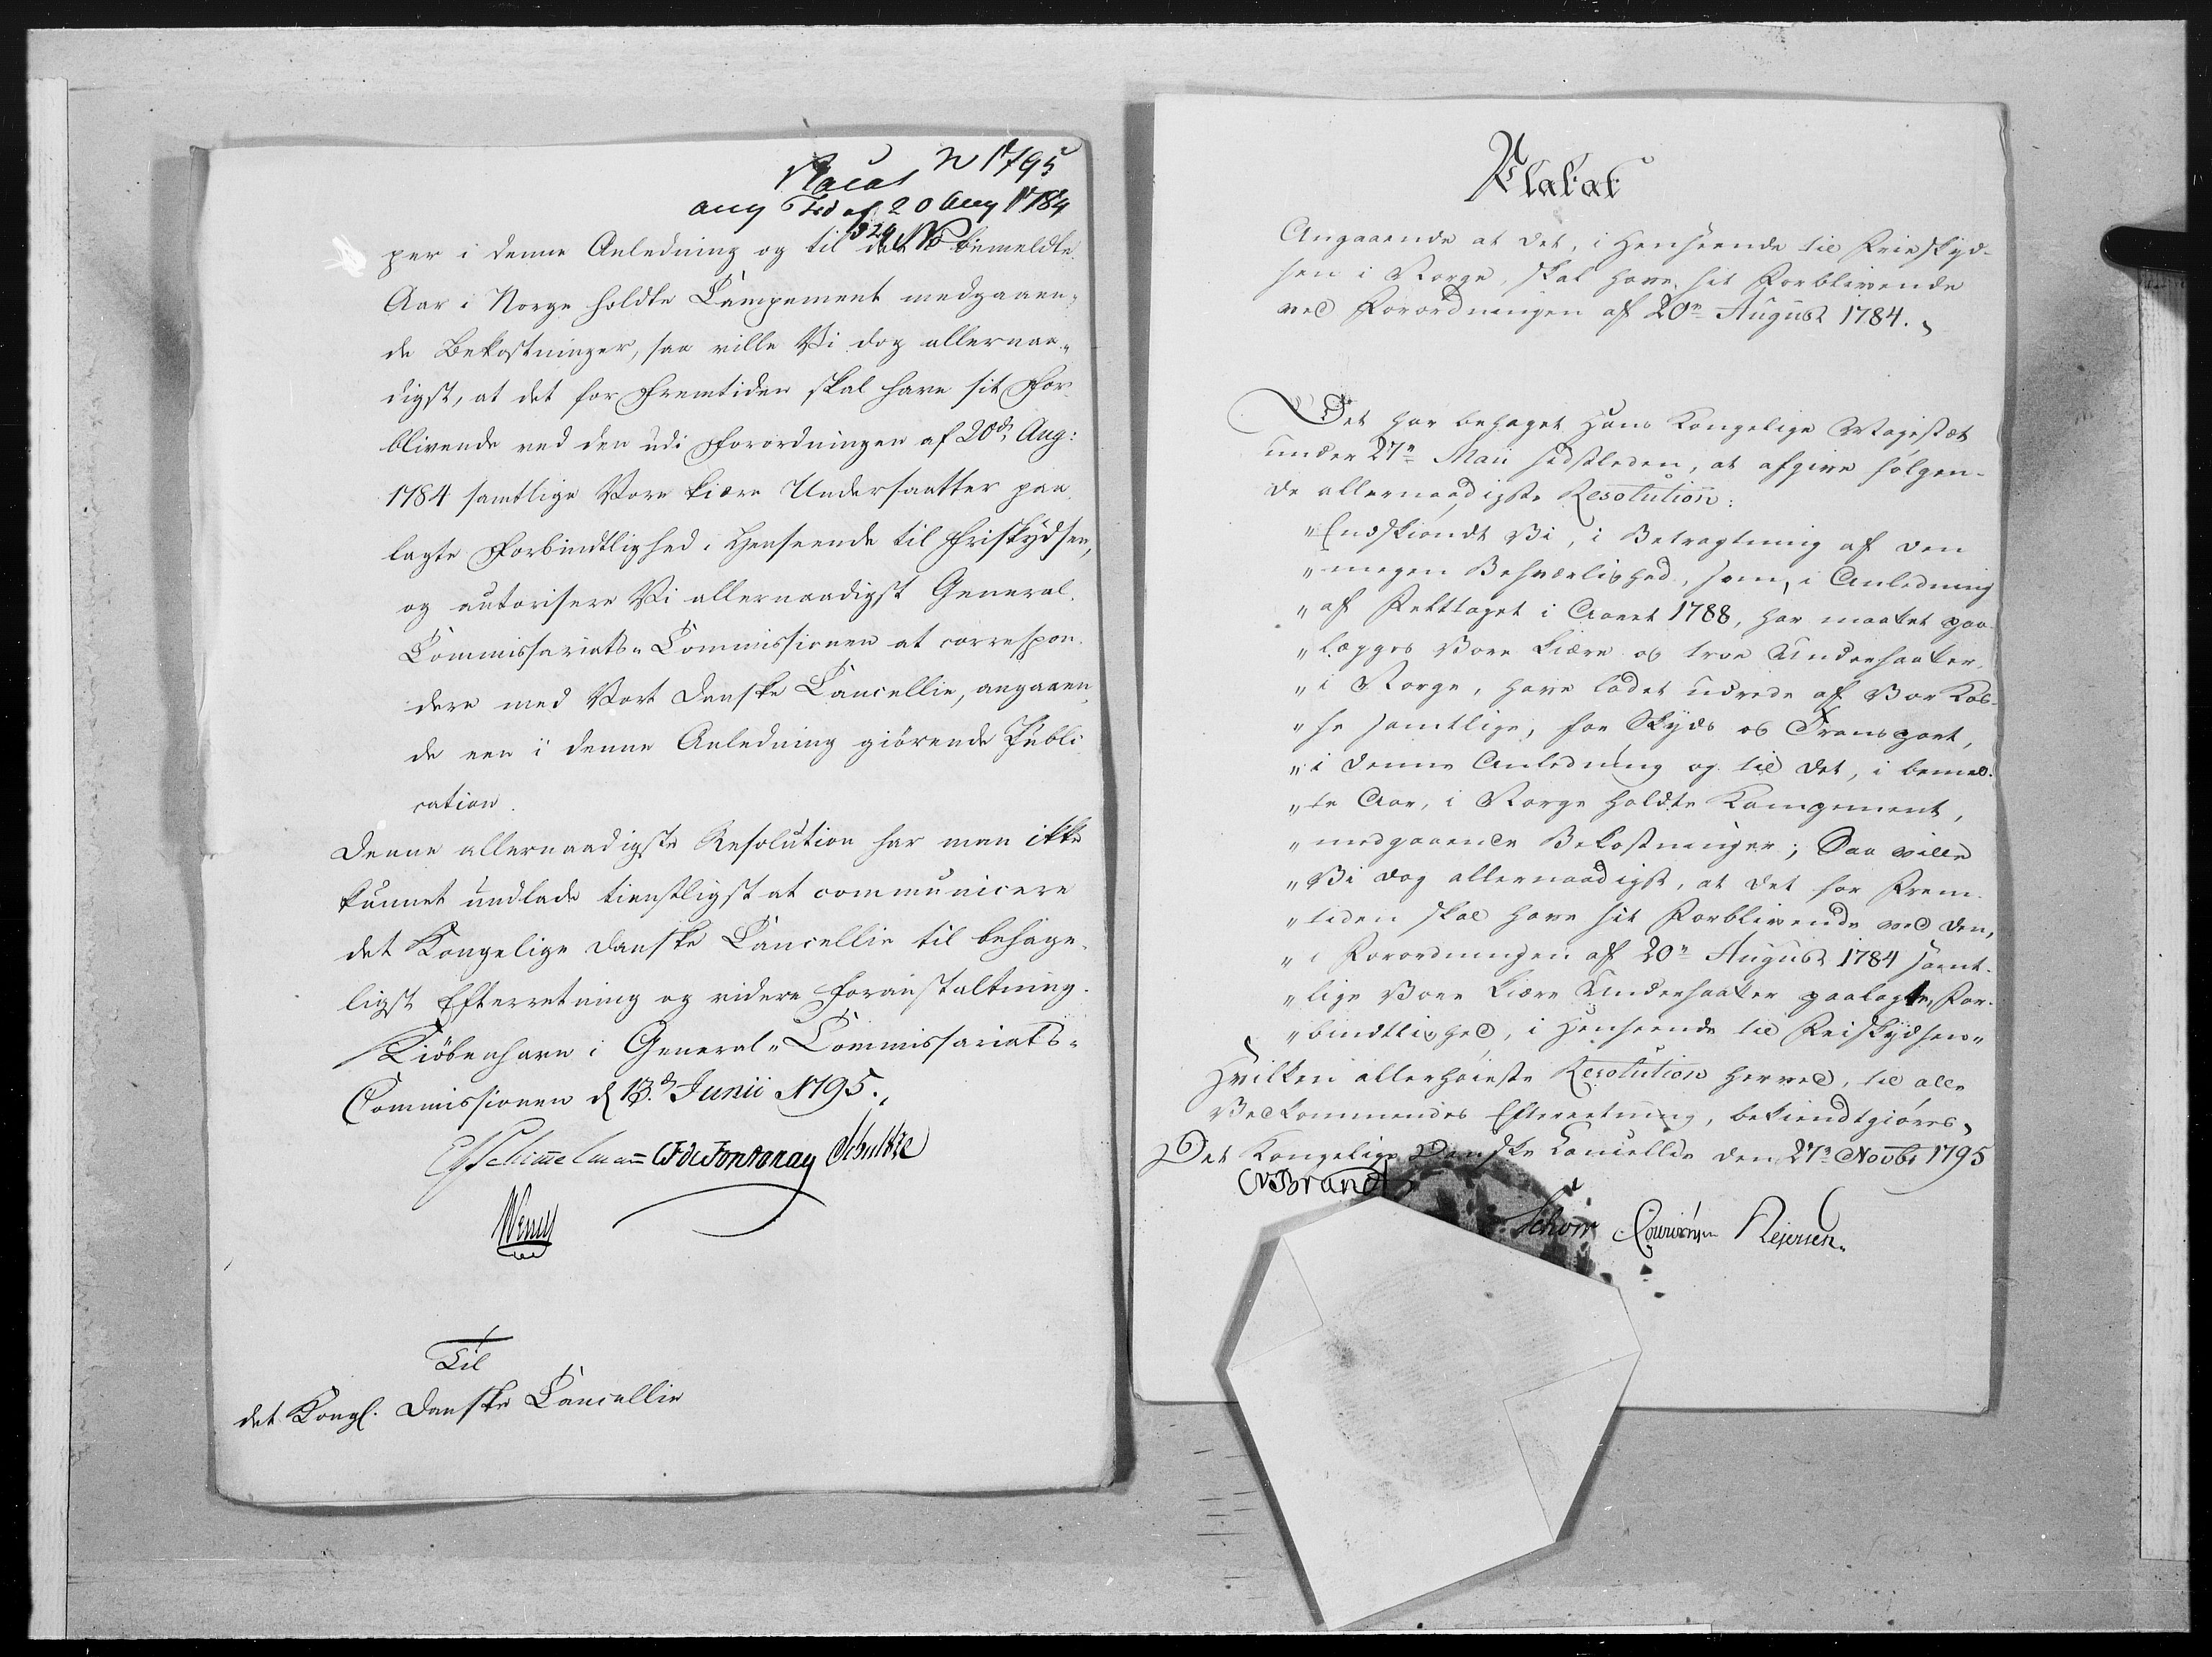 Placat N 1795
ang Frd af 20 Aug 1784
329
per i denne Anledning og til det bemeldte
Aar i Norge holdte Campement medgaaen-
de Bekostninger, saa ville Vi dog allernaa-
digst, at det for Fremtiden skal have sit For-
blivende ved den udi Forordningen af 20de Aug:
1784 samtlige Vore kiære Undersaatter paa-
lagte Forbindtlighed i Henseende til Friskydsen,
og autorisere Vi allernaadigst General-
Commissariats-Commissionen at correspon-
dere med Vort Danske Cancellie, angaaen-
de een i denne Anledning giörende Publi-
cation.
Denne allernaadigste Resolution har man ikke
kunnet undlade tienstligst at communicere
det Kongelige Danske Cancellie til behage-
ligst Efterretning og videre Foranstaltning.
Kiöbenhavn i General-Commissariats-
Commissionen d 13de Junii 1795.
Schimmelmann de Fontenay Schultze
Wenck
Til
det Kongl. Danske Cancellie
Plakat
Angaaende at det, i Henseende til Frieskyd-
sen i Norge, skal have sit Forblivende
ved Forordningen af 20n August 1784.
Det har behaget Hans Kongelige Majestæt
under 27n Maii sidstleden, at afgive følgen-
de allernaadigste Resolution:
"Endskiøndt Vi, i Betragtning af den
"megen Besværlighed, som, i Anledning
"af Felttoget i Aaret 1788, har maattet paa-
"lægges Vore kiære og troe Undersaatter
"i Norge, have ladet udrede af Vor Kas-
"se samtlige, for Skyds og Transport,
"i denne Anledning og til det, i bemel-
"te Aar, i Norge holdte Kampement,
"medgaaende Bekostninger; Saa ville
"Vi dog allernaadigst, at det for Frem-
"tiden skal have sit Forblivende ved den,
"i Forordningen af 20n August 1784 samt-
"lige Vore kiære Undersaatter paalagte, For-
"bindtlighed, i Henseende til Friskydsen"
Hvilken allerhøieste Resolution herved, til alle
Vedkommendes Efterretning, bekiendtgiøres.
Det Kongelige Danske Cancellie den 27n Novbr 1795
Brandt
Schow